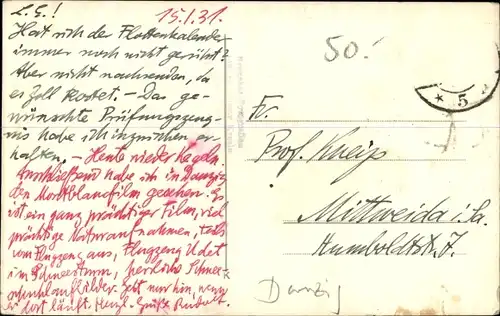 L. E.!
15.1.31.
Hat sich der Flottenkalender
immer noch nicht gerührt?
Aber nicht nachsenden, da
es Zoll kostet. – Das ge-
wünschte Prüfungszeug-
nis habe ich inzwischen er-
halten. – Heute wieder Kegeln.
Anschließend habe ich in Danzig
den Montblancfilm gesehen. Es
ist ein ganz prächtiger Film, viel
prächtige Naturaufnahmen, teils
vom Flugzeug aus, Flugzeug Udet
im Schneesturm, herrliche Schnee-
schuhlaufbilder. Geht nur hin, wenn
er dort läuft. Herzl. Grüße
50.-
5
Fr.
Prof. Kneip
Mittweida i. Sa.
Humboldtstr. 7.
Danzig